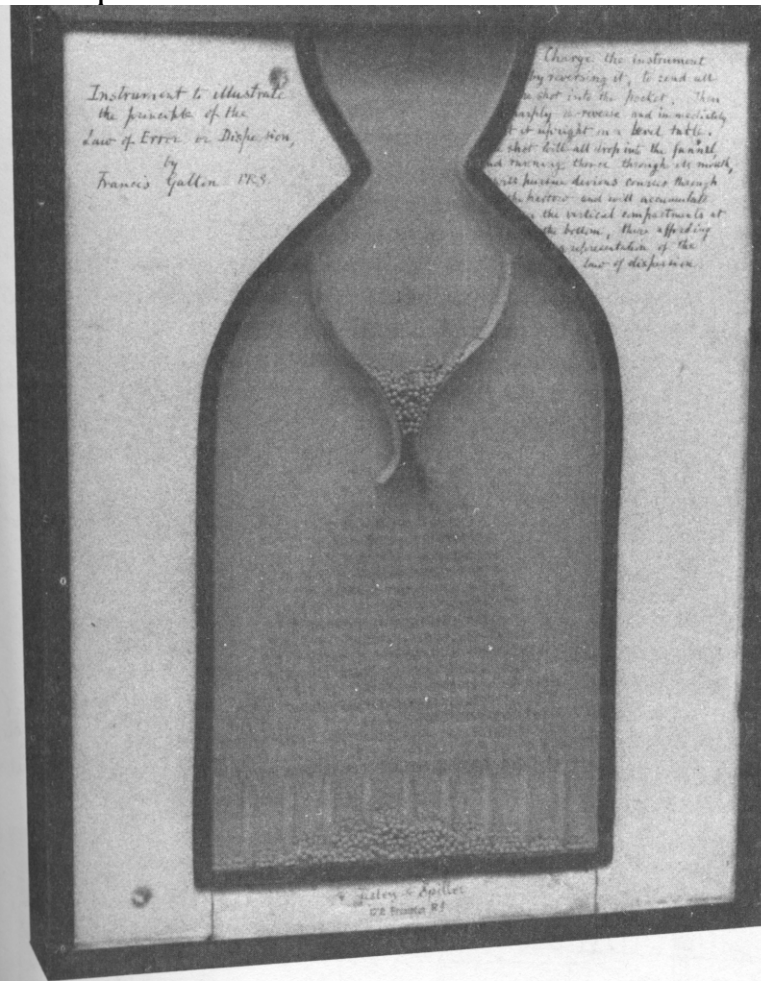 Instrument to illustrate
the principle of the
Law of Error or Dispersion,
by
Francis Galton FRS
Charge the instrument
by reversing it, to send all
the shot into the pocket. Then
sharply re-reverse and immediately
set it upright on a level table.
shot will all drop into the funnel
and running thence through its mouth,
will pursue devious courses through
the harrow and will accumulate
in the vertical compartments at
the bottom, there affording
a representation of the
law of dispersion
Tisley & Spiller
172 Brompton Rd